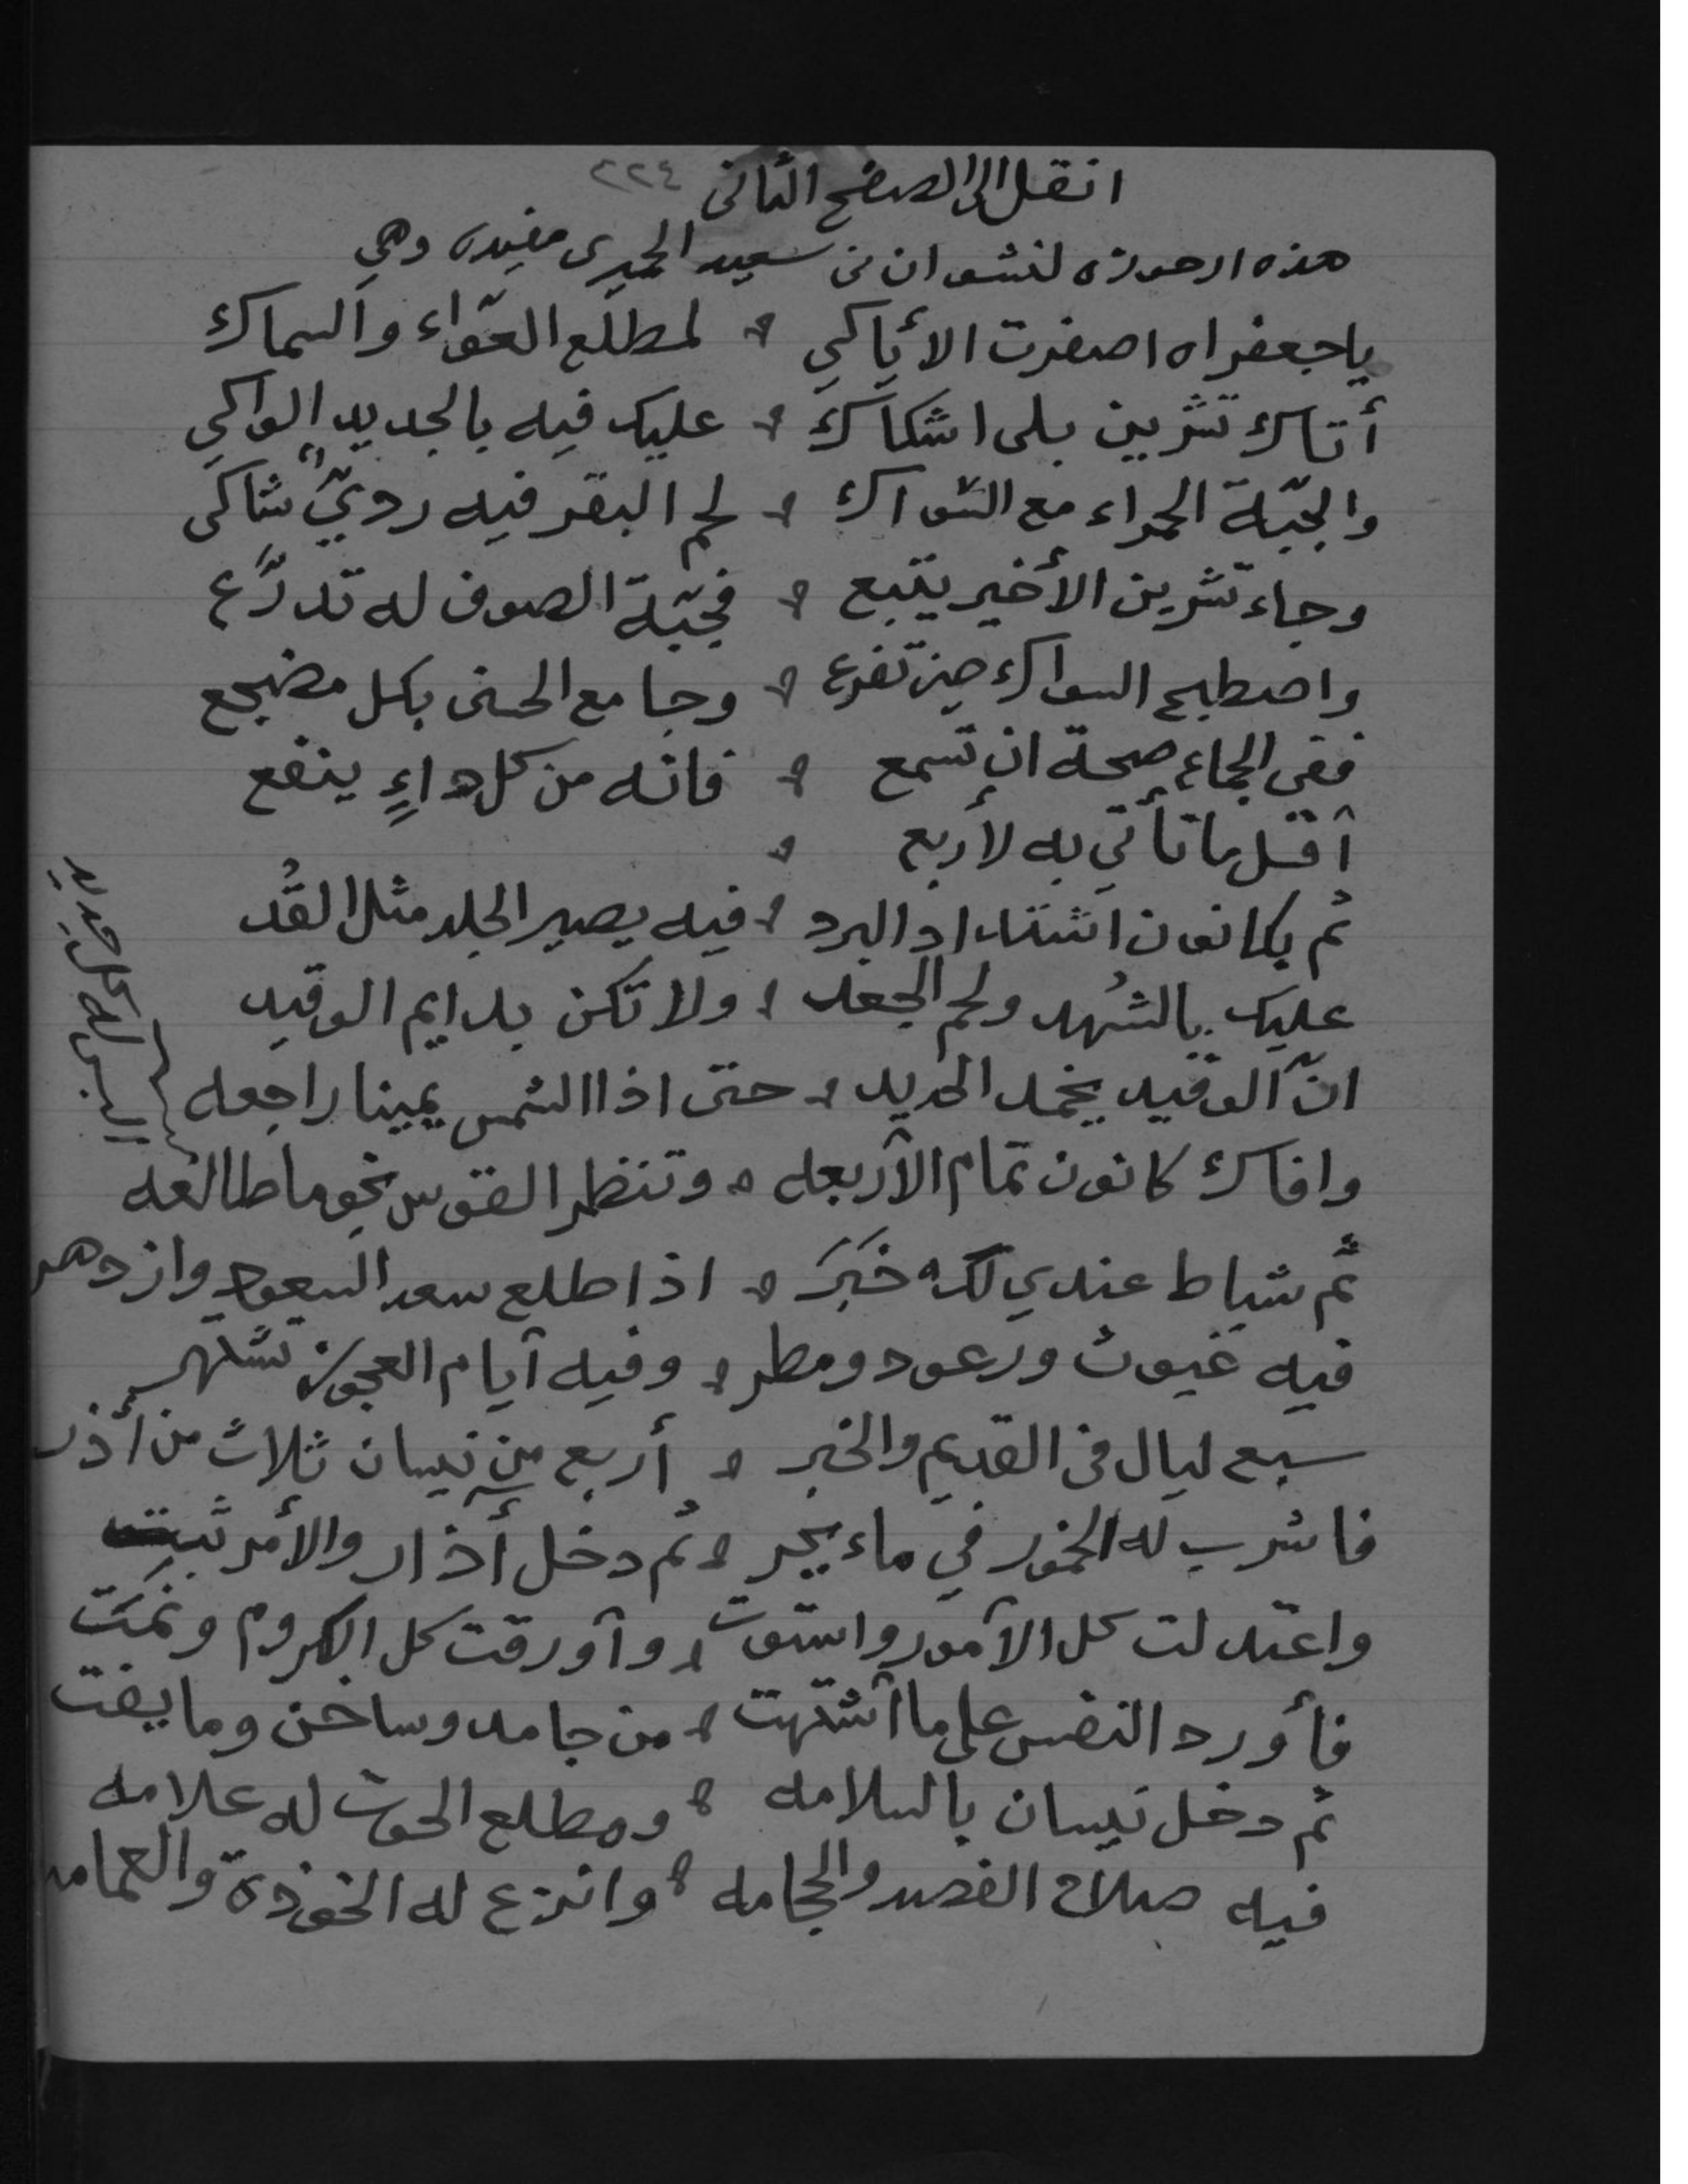 انقل الى الصفح الثاني ٢٢٤
هذه ارجوزه لنشوان بن سعيد الحميرى مفيده وهي
ياجعفراه اصفرت الأياكي لمطلع العوّاء والسماك
أتاك تشرين بلى اشكاك عليك فيه بالجديد الواكي
والجبّة الحمراء مع السّواك لحم البقر فيه رديٌّ شاكى
وجاء تشرين الأخير يتبع فجبّة الصوف له تدرَّع
واصطبح السواك حين تفزع وجامع الحسنى بكل مضجع
ففى الجماع صحة ان تسمع فانه من كل داءٍ ينفع
أقل ما تأتي به لأربع
ثم بكانون اشتداد البرد فيه يصير الجلد مثل القُد
عليك بالشهد ولحم الجعد ولا تكن بدايم الوقيد
انّ الوقيد يخمد الحديد حتى اذا الشمس يمينا راجعه
وافاك كانون تمام الأربعه وتنظر القوس نجوما طالعه
ثم شباط عندي لك خَبَر اذا طلع سعد السعود وازدهر
فيه غيوث ورعود ومطر وفيه أيام العجوز تشتهر
سبع ليال في القديم والخبر أربع من نيسان ثلاث من أذر
فاشرب له الخمور في ماء يجر ثم دخل أذار والأمر ثبت
واعتدلت كل الأمور واستوت وأورقت كل الكروم ونمَت
فأورد النفس على ما اشتهت من جامد وساخن وما يفت
ثم دخل نيسان بالسلامه ومطلع الحوت له علامه
فيه صلاح الفصد والحجامه وانزع له الخوذة والعمامه
البس له كل جديد